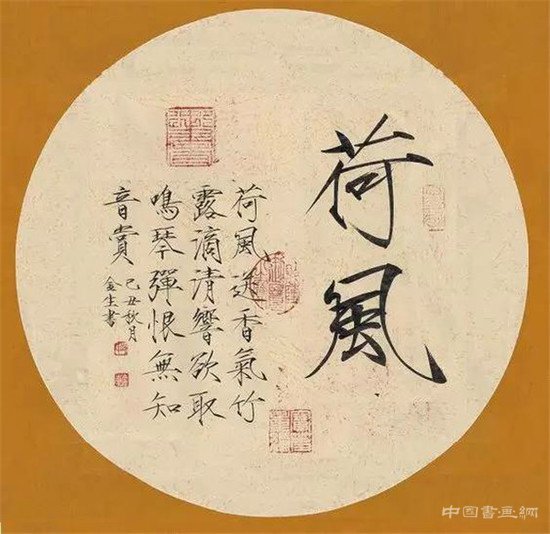 荷風
荷風送香氣竹
露滴清響欲取
鳴琴彈恨無知
音賞
己丑秋月
金生書
中国書画網